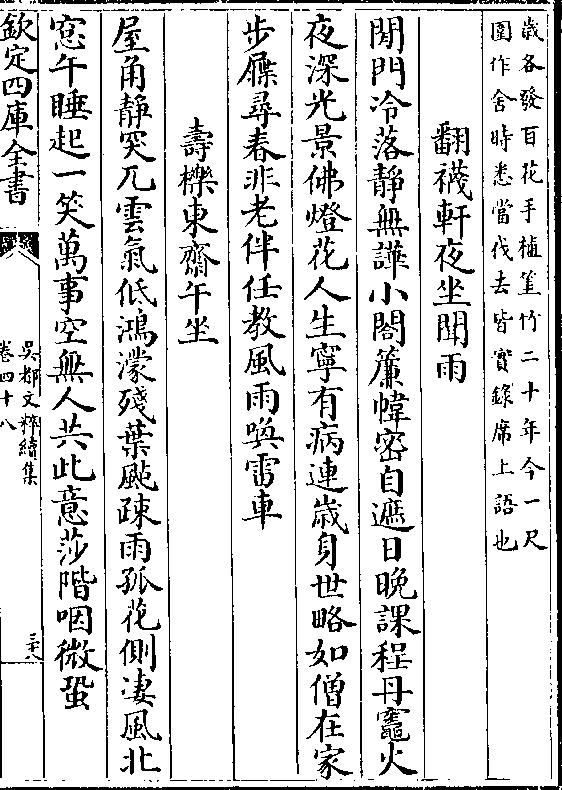 歲各發百花手植篔竹二十年今一尺
圍作舍時悉當伐去皆實錄席上語也
翻襪軒夜坐聞雨
閒門冷落靜無譁小閣簾幃密自遮日晚課程丹竈火
夜深光景佛燈花人生寧有病連歲身世略如僧在家
步屧尋春非老伴任教風雨喚雷車
壽櫟東齋午坐
屋角靜突兀雲氣低鴻濛殘葉颭疎雨孤花側凄風北
窓午睡起一笑萬事空無人共此意莎階咽微蛩
欽定四庫全書
吳都文粹續集
卷四十八
三十八